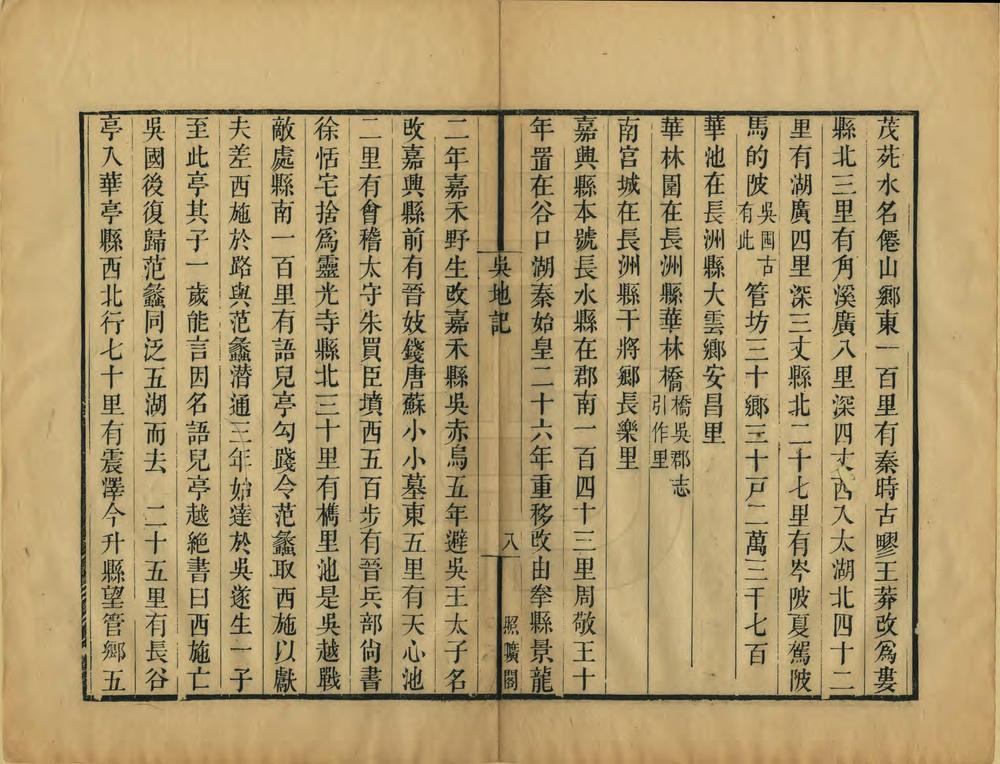 茂苑水名僊山鄉東一百里有秦時古疁王莽改爲婁
縣北三里有角溪廣八里深四丈西入太湖北四十二
里有湖廣四里深三丈縣北二十七里有岑陂夏駕陂
馬的陂吳國古有此 管坊三十鄉三十戸二萬三千七百
華池在長洲縣大雲鄉安昌里
華林園在長洲縣華林橋橋吳郡志引作里
南宫城在長洲縣干將鄉長樂里
嘉興縣本號長水縣在郡南一百四十三里周敬王十
年置在谷口湖秦始皇二十六年重移改由拳縣景龍
吳地記 八 照曠閣
二年嘉禾野生改嘉禾縣吳赤烏五年避吳王太子名
改嘉興縣前有晉妓錢唐蘇小小墓東五里有天心池
二里有會稽太守朱買臣墳西五百步有晉兵部尙書
徐恬宅捨爲靈光寺縣北三十里有檇里池是吳越戰
敵處縣南一百里有語兒亭勾踐令范蠡取西施以獻
夫差西施於路與范蠡潜通三年始達於吳遂生一子
至此亭其子一歲能言因名語兒亭越絶書曰西施亡
吳國後復歸范蠡同泛五湖而去 二十五里有長谷
亭入華亭縣西北行七十里有震澤今升縣望管鄉五